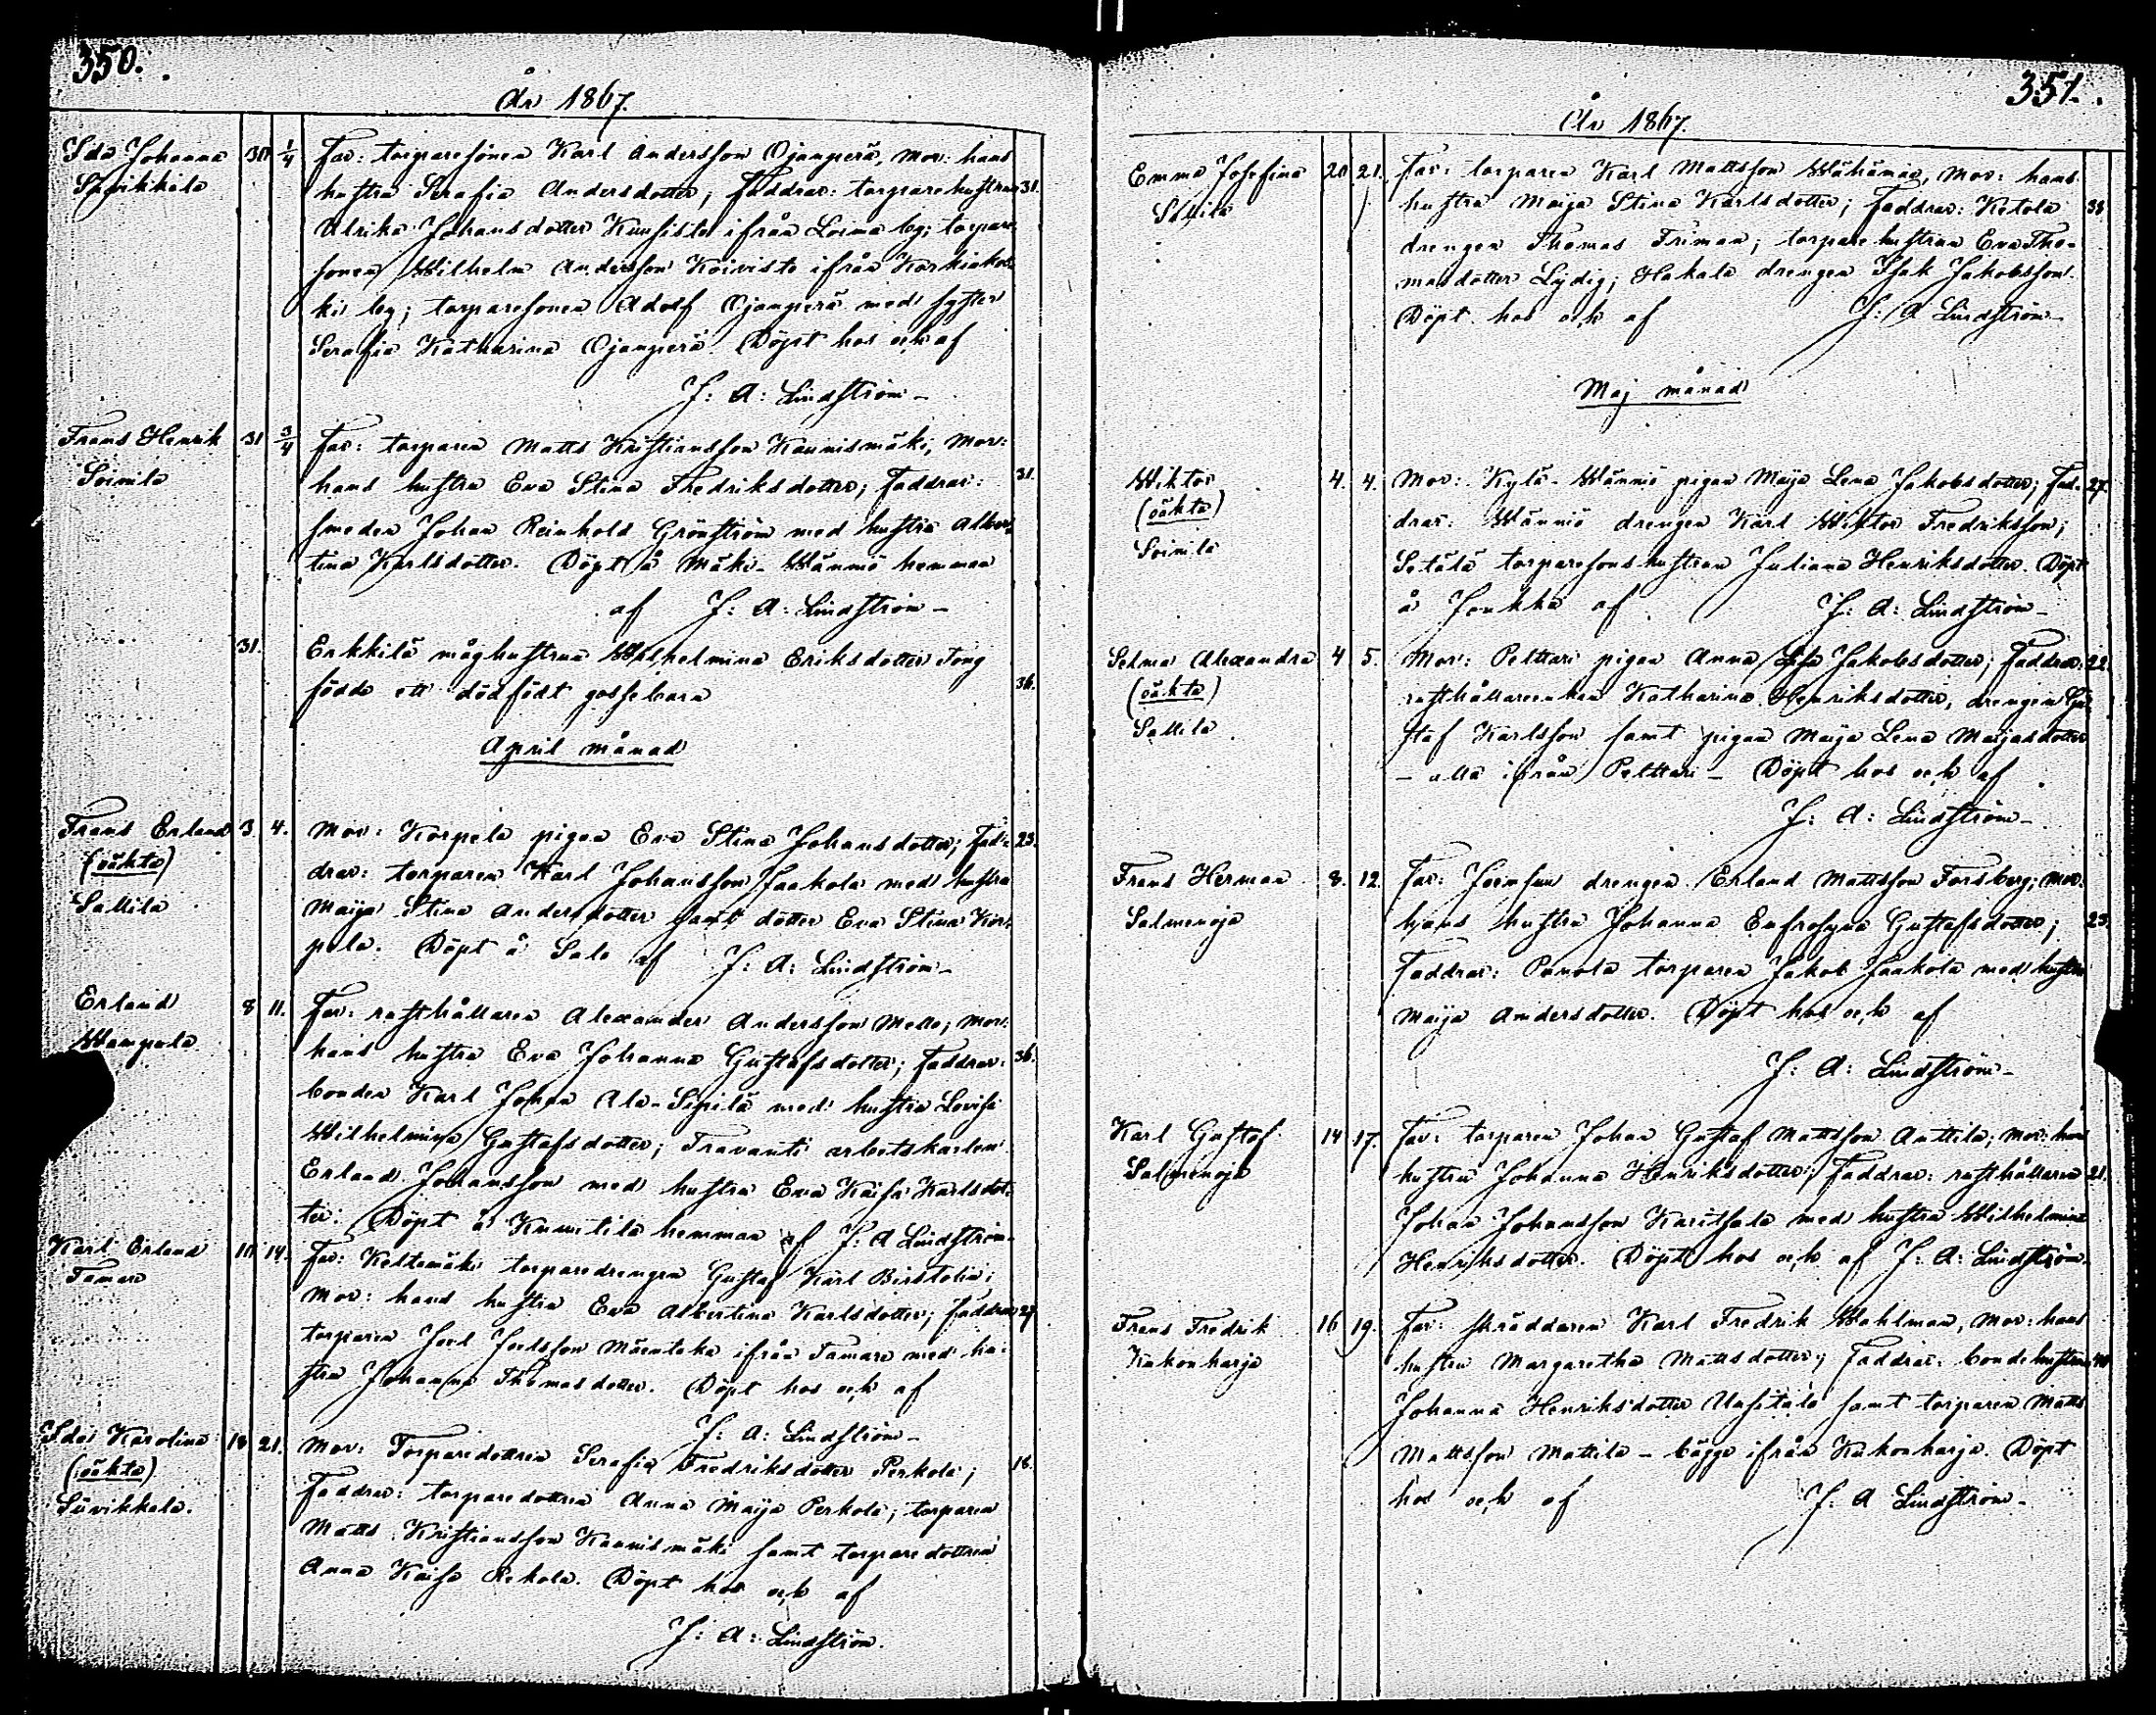 350.
År 1867.
Ida Johanna 30 1/4 Far: torparesonen Karl Andersson Ojanperä, Mor: hans
Suvikkala hustru Serafia Andersdotter; Faddrar: torparehustrun 31.
Ulrika Johansdotter Kuusisto ifrån Loima by; torpare
sonen Wilhelm Andersson Koivisto ifrån Karkiakos-
ki by; torparesonen Adolf Ojanperä med syster
Serafia Katharina Ojanperä. Döpt hos och af
J: A: Lindström-
Frans Henrik 31 3/4 Far: torparen Matts Kristiansson Kaunismäki, Mor:
Soinila hans hustru Eva Stina Fredriksdotter; Faddrar: 31.
smeden Johan Reinhold Grönström med hustru Alber-
tina Karlsdotter. Döpt å Mäki-Wänniö hemman
af J: A: Lindström-
31. Erkkilä måghustrun Wilhelmina Eriksdotter Tong
födde ett dödfödt gossebarn 36.
April månad
Frans Erland 3. 4. Mor: Korpela pigan Eva Stina Johansdotter; Fad- 23.
(oäkta) drar: torparen Karl Johansson Jaakola med hustru
Sallila Maija Stina Andersdotter samt dotter Eva Stina Kor-
pela. Döpt å Salo af J: A: Lindström-
Erland 8 11. Far: rusthållaren Alexander Andersson Mello; Mor:
Wampula hans hustru Eva Johanna Gustafsdotter; Faddrar: 36.
bonden Karl Johan Ala-Sipilä med hustru Lovisa
Wilhelmina Gustafsdotter; Travanti arbetskarlen
Erland Johansson med hustru Eva Kaisa Karlsdot-
ter. Döpt å Knuutila hemman af J: A Lindström-
Karl Erland 10 14. Far: Keltamäki torparedrengen Gustaf Karl Birstolin;
Tamare Mor: hans hustru Eva Albertina Karlsdotter; Faddrar 27
torparen Joel Joelsson Mäentaka ifrån Tamare med hu-
stru Johanna Thomasdotter. Döpt hos och af
J: A: Lindström-
Ida Karolina 18 21. Mor: Torparedottren Serafia Fredriksdotter Perkola; 18.
(oäkta) Faddrar: torparedottren Anna Maija Perkola; torparen
Suvikkala. Matts Kristiansson Kaunismäki samt torparedottren
Anna Kaisa Rekola. Döpt hos och af
J: A: Lindström.
351.
År 1867.
Emma Josefina 20 21. Far: torparen Karl Mattsson Wähämäe, Mor: hans
Sallila hustru Maija Stina Karlsdotter; Faddrar: Ketola 38
drengen Thomas Friman; torparehustrun Eva Tho-
masdotter Lydig; Hakala drengen Isak Jakobsson.
Döpt hos och af J: A Lindström-
Maj månad
Wiktor 4. 4. Mor: Kylä-Wänniö pigan Maija Lena Jakobsdotter; Fad- 27.
(oäkta) drar: Wänniö drengen Karl Wiktor Fredriksson;
Soinila Setälä torparesonshustrun Juliana Henriksdotter. Döpt
å Joukka af J: A: Lindström-
Selma Alexandra 4 5. Mor: Pelttari pigan Anna Lisa Jakobsdotter; Faddrar: 22.
(oäkta) rusthållareenkan Katharina Henriksdotter, drengen Gu-
Sallila staf Karlsson samt pigan Maija Lena Maijasdotter
- alla ifrån Pelttari - Döpt hos och af
J: A: Lindström-
Frans Herman 8. 12. Far: drengen Erland Mattsson Forsberg; Mor:
Salmenoja hans hustru Johanna Eufrosyna Gustafsdotter; 23.
Faddrar: Panola torparen Jakob Jaakola med hustru
Maija Andersdotter. Döpt hos och af
J: A: Lindström-
Karl Gustaf 14 17. Far: torparen Johan Gustaf Mattsson Anttila; Mor: hans
Salmenoja hustru Johanna Henriksdotter; Faddrar: rusthållaren 21.
Johan Johansson Karitsala med hustru Wilhelmina
Henriksdotter. Döpt hos och af J: A: Lindström.
Frans Fredrik 16 19. Far: skräddaren Karl Fredrik Wahlman, Mor: hans
Kukonharja hustru Margaretha Mattsdotter; Faddrar: bondehustrun 40
Johanna Henriksdotter Uusitalo samt torparen Matts
Mattsson Mattila - bägge ifrån Kukonharja. Döpt
hos och af J: A Lindström-